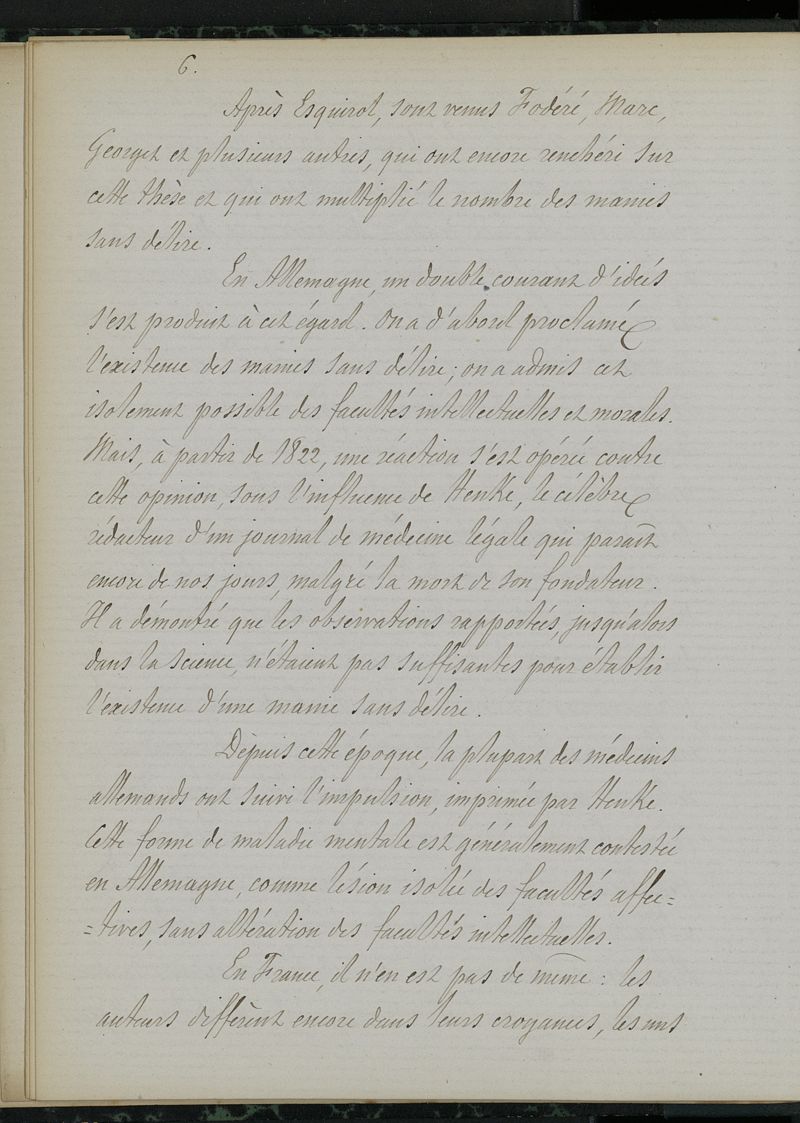 6.
Après Esquirol, sont venus Fodéré, Marc,
Georget et plusieurs autres, qui ont encore renchéri sur
cette thèse et qui ont multiplié le nombre des manies
sans délire.
En Allemagne, un double courant d'idées
s'est produit à cet égard. On a d'abord proclamé
l'existence des manies sans délire; on a admis cet
isolement possible des facultés intellectuelles et morales.
Mais, à partir de 1822, une réaction s'est opérée contre
cette opinion, sous l'influence de Henke, le célèbre
rédacteur d'un journal de médecine légale qui paraît
encore de nos jours, malgré la mort de son fondateur.
Il a démontré que les observations rapportées, jusqu'alors
dans la science, n'étaient pas suffisantes pour établir
l'existence d'une manie sans délire.
Depuis cette époque, la plupart des médecins
allemands ont suivi l'impulsion, imprimée par Henke.
Cette forme de maladie mentale est généralement contestée
en Allemagne, comme lésion isolée des facultés affec=
=tives, sans altération des facultés intellectuelles.
En France, il n'en est pas de même : les
auteurs diffèrent encore dans leurs croyances, les uns